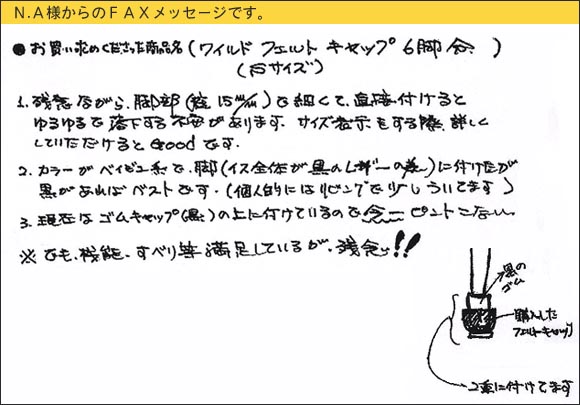 N.A様からのＦＡＸメッセージです。
●お買い求めくださった商品名(ワイルド フェルト キャップ 6脚分 )
(Sサイズ)
1. 残念ながら、脚部(径15m/m)で細くて、直接付けると
ゆるゆるで落下する不安があります。サイズ表示をする際、詳しく
していただけるとGoodです。
2. カラーがベイビュ系で、脚(イス全体が黒のレザーの為)に付けたが
黒があればベストです。(個人的にはリビングで少しういてます)
3. 現在はゴムキャップ(黒)の上に付けているので ピントこない。
※でも、機能、すべり等満足しているが、残念!!
黒の
ゴム
購入した
フェルトキャップ
2重に付けてます